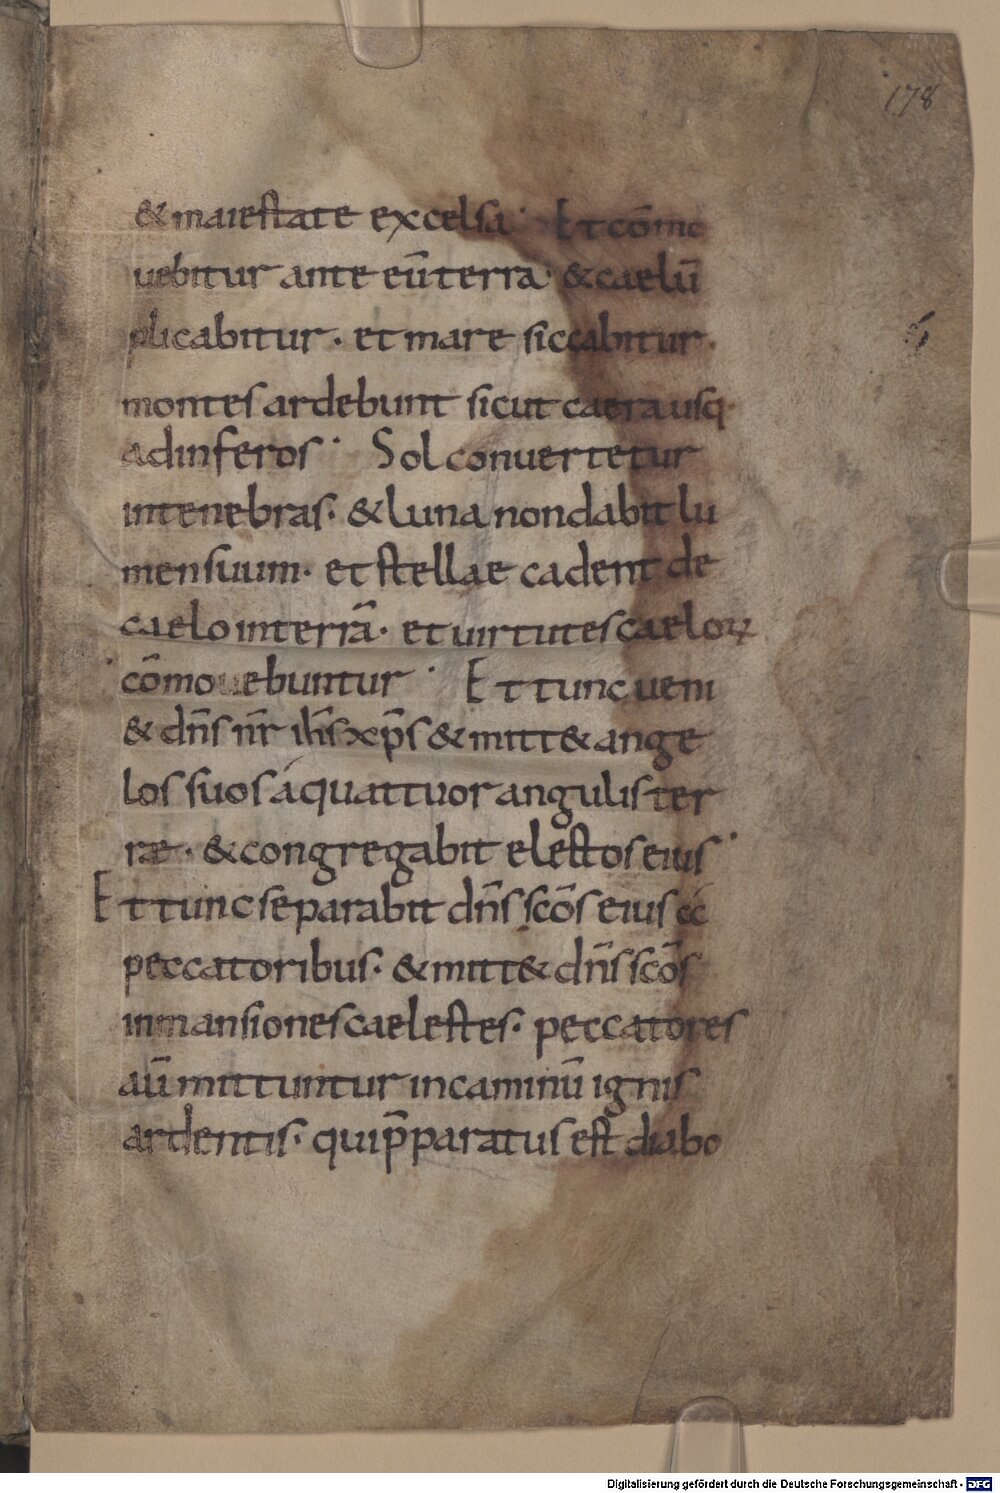 178
& maiestate excelsa· Et cōmo
uebitur ante eū terra· & caelū
plicabitur· et mare siccabitur·
montes ardebunt sicut caera usq·
ad inferos· Sol conuertetur
in tenebras· & luna non dabit lu
men suum· et stellae cadent de
caelo in terrā· et uirtutes caeloꝝ
cōmouebuntur· Et tunc ueni
& dn̄s nr̄ ih̄s xp̄s & mitt& ange
los suos a quattuor angulis ter
rae· & congregabit electos eius·
Et tunc separabit dn̄s sc̄ōs eius
peccatoribus· & mitt& dn̄s sc̄ōs
in mansiones caelestes· peccatores
aū mittuntur in caminū ignis
ardentis· qui p̄paratus est diabo
Digitalisierung gefördert durch die Deutsche Forschungsgemeinschaft - DFG